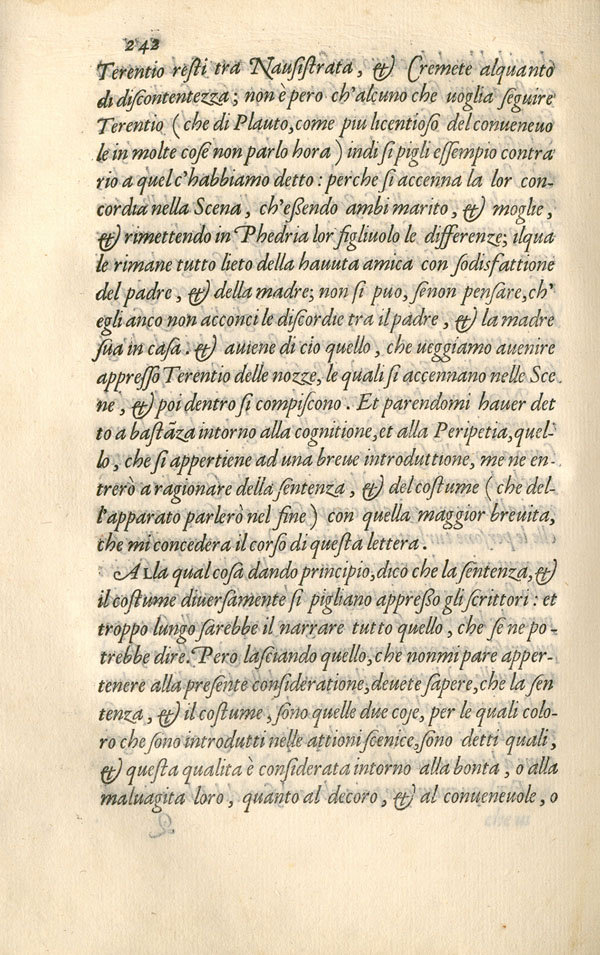 242
Terentio resti tra Nausistrata, & Cremete alquanto
di discontentezza; non è pero ch'alcuno che uoglia seguire
Terentio (che di Plauto, come piu licentioso del conueneuo
le in molte cose non parlo hora) indi si pigli essempio contra
rio a quel c'habbiamo detto: perche si accenna la lor con-
cordia nella Scena, ch'eßendo ambi marito, & moglie,
& rimettendo in Phedria lor figliuolo le differenze; ilqua
le rimane tutto lieto della hauuta amica con sodisfattione
del padre, & della madre; non si puo, senon pensare, ch'
egli anco non acconci le discordie tra il padre, & la madre
sua in casa. & auiene di cio quello, che ueggiamo auenire
appresso Terentio delle nozze, le quali si accennano nelle Sce
ne, & poi dentro si compiscono. Et parendomi hauer det
to a bastãza intorno alla cognitione, et alla Peripetia, quel-
lo, che si appertiene ad una breue introduttione, me ne en-
trerò a ragionare della sentenza, & del costume (che del-
l'apparato parlerò nel fine) con quella maggior breuita,
che mi concedera il corso di questa lettera.
ALla qual cosa dando principio, dico che la sentenza, &
il costume diuersamente si pigliano appreßo gli scrittori: et
troppo lungo sarebbe il narrare tutto quello, che se ne po-
trebbe dire. Pero lasciando quello, che non mi pare apper-
tenere alla presente consideratione, deuete sapere, che la sen
tenza, & il costume, sono quelle due cose, per le quali colo-
ro che sono introdutti nelle attioni scenice, sono detti quali,
& questa qualita è considerata intorno alla bonta, o alla
maluagita loro, quanto al decoro, & al conueneuole, o